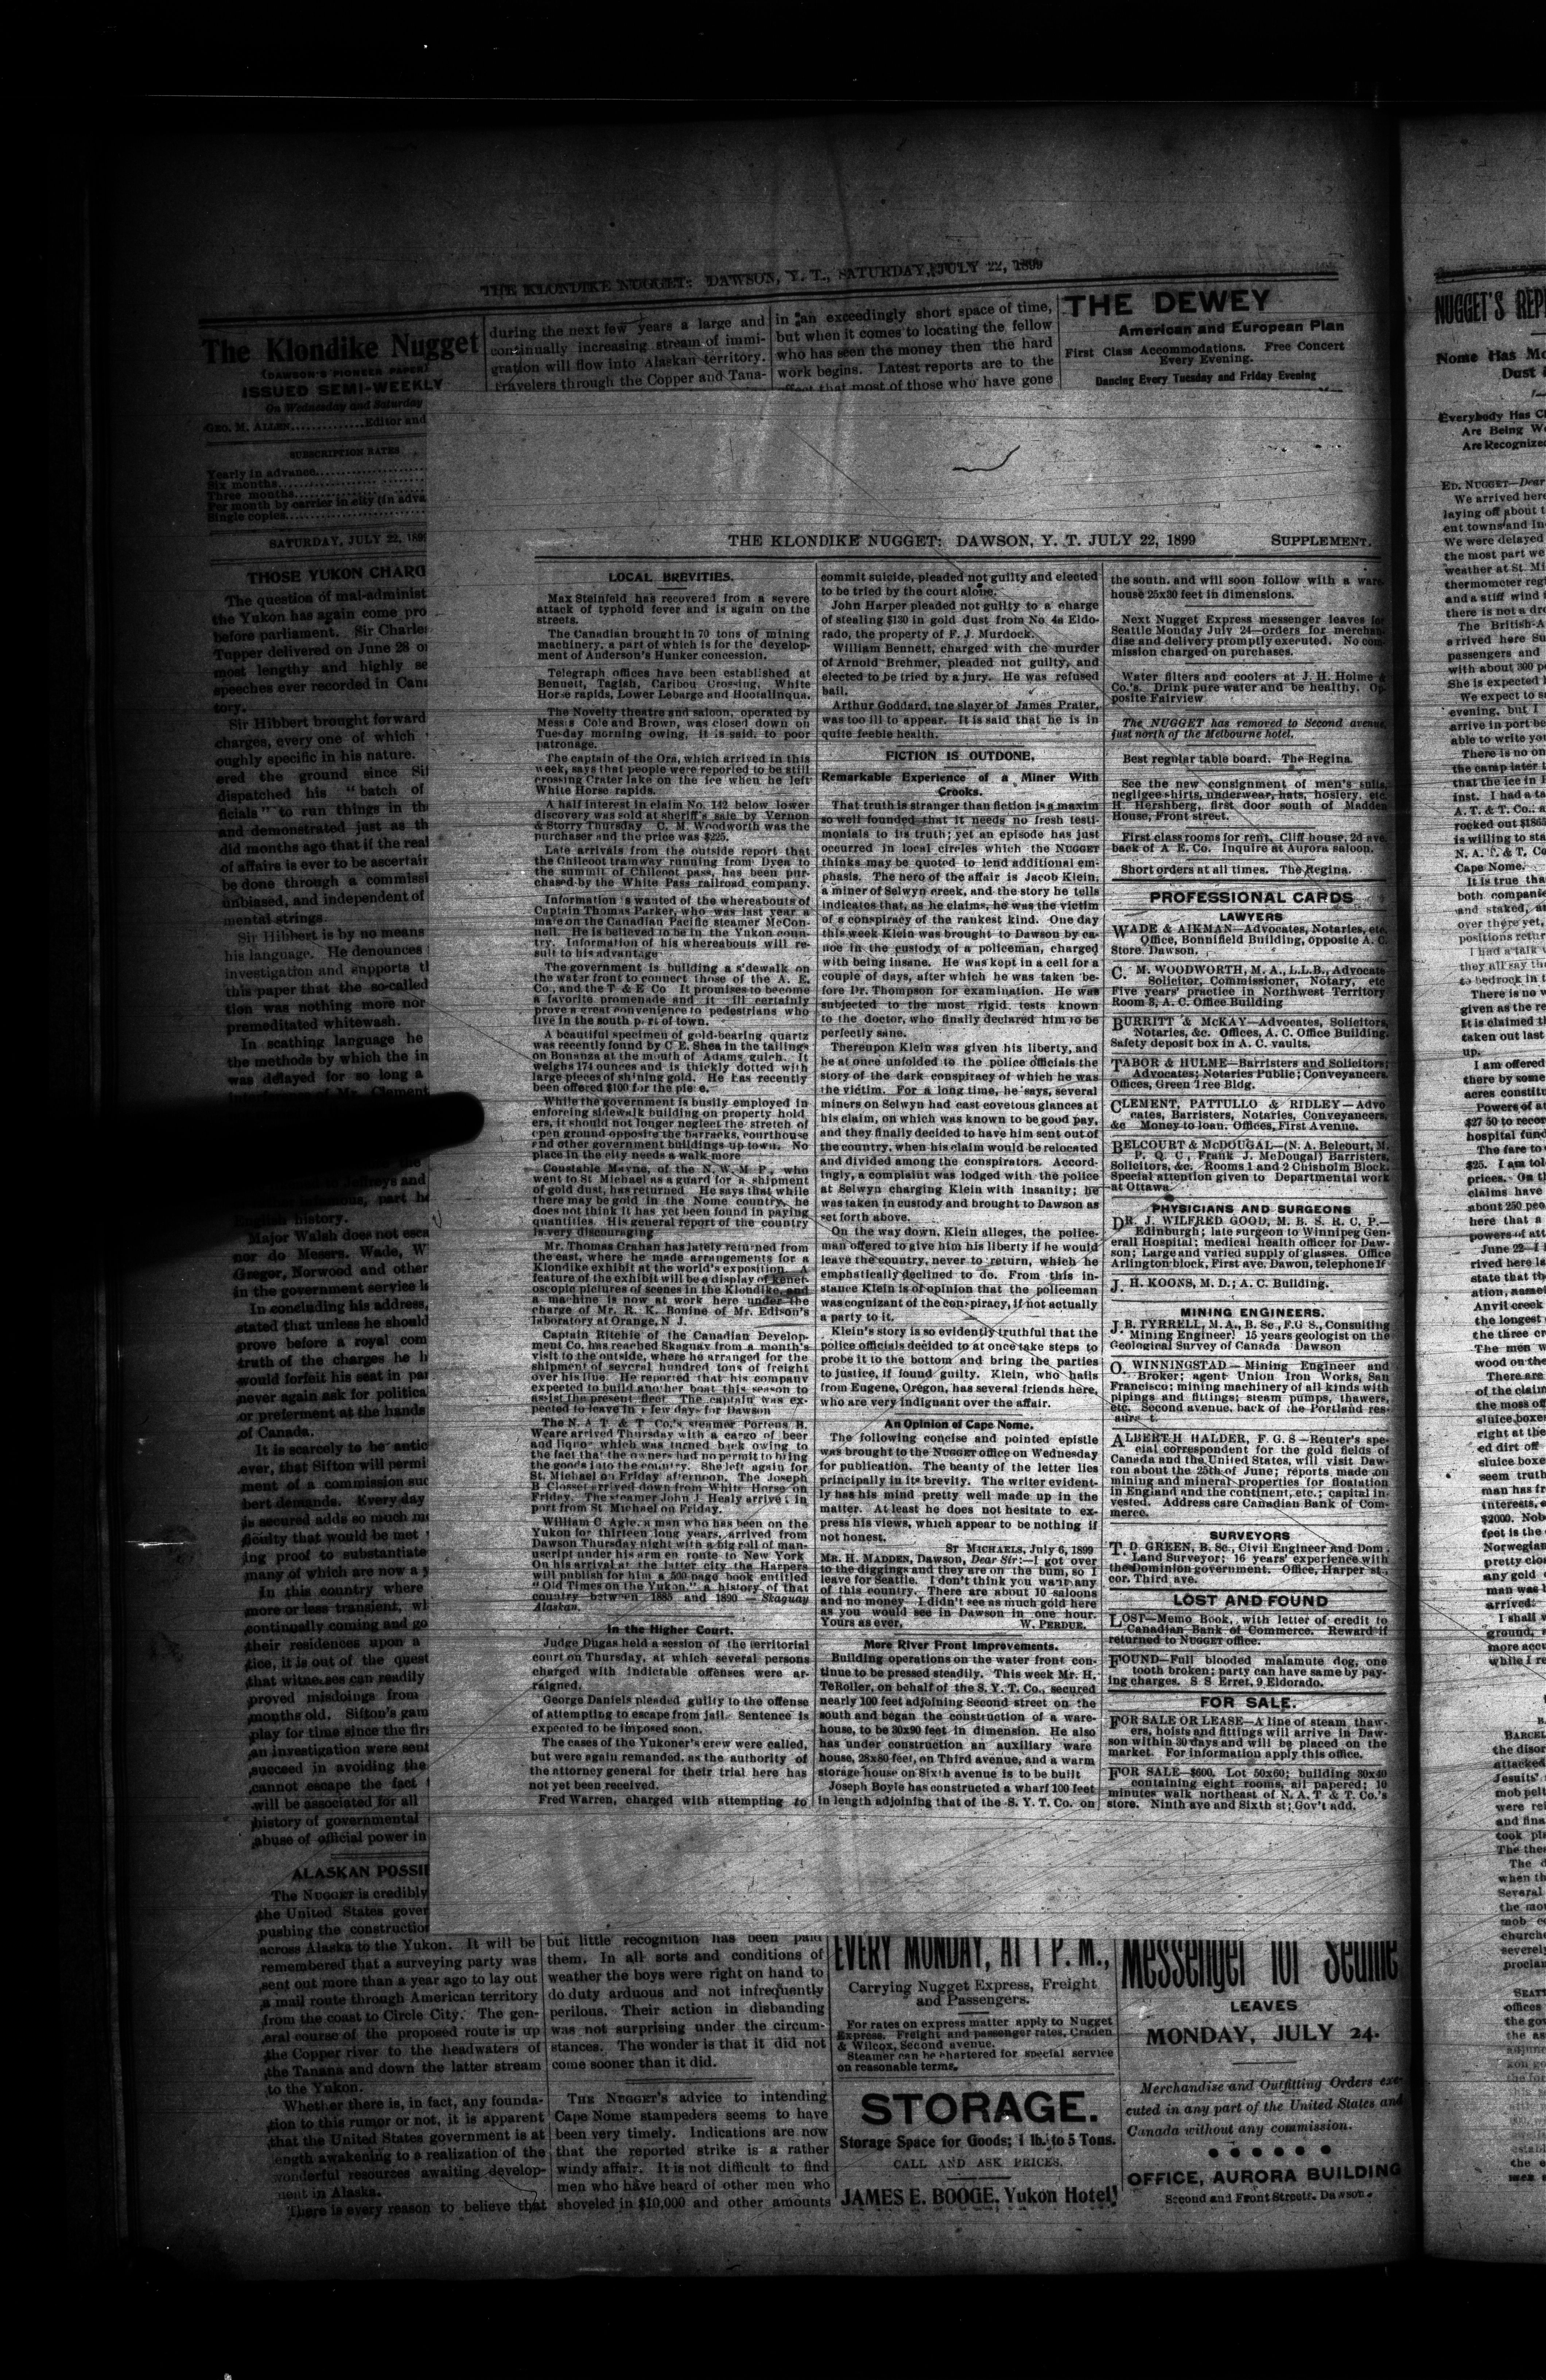 THE KLONDIKE NUGGET: DAWSON, Y. T., SATURDAY, JULY 22, 1899
The Klondike Nugget
(DAWSON'S PIONEER PAPER)
ISSUED SEMI-WEEKLY
On Wednesday and Saturday
GEO. M. ALLEN..............Editor and
SUBSCRIPTION RATES
Yearly in advance
Six months
Three months
Per month by carrier in city (in adva
Single copies
SATURDAY, JULY 22, 189
THOSE YUKON CHARG
The question of mal-administ
the Yukon has again come pro
before parliament. Sir Charle
Tupper delivered on June 28 o
most lengthy and highly se
speeches ever recorded in Can
tory.
Sir Hibbert brought forward
charges, every one of which
oughly specific in his nature.
ered the ground since Sif
dispatched his "batch of
ficials" to run things in th
and demonstrated just as th
did months ago that if the real
of affairs is ever to be ascertain
be done through a commissi
unbiased, and independent of
mental strings.
Sir Hibbert is by no means
his language. He denounces
investigation and supports t
this paper that the so-called
tion was nothing more nor
premeditated whitewash.
In scathing language he
the methods by which the in
was delayed for so long a
Jeffreys and
part he
English history.
Major Walsh does not esca
nor do Messrs. Wade, W
Gregor, Norwood and other
in the government service
In concluding his address,
stated that unless he should
prove before a royal com
truth of the charges he
would forfeit his seat in par
never again ask for politica
or preferment at the hands
of Canada.
It is scarcely to be antic
ever, that Sifton will permi
ment of a commission suc
bert demands. Every day
is secured adds so much
ficulty that would be met
ing proof to substantiate
many of which are now a
In this country where
more or less transient,
continually coming and go
their residences upon a
tice, it is out of the quest
that witnesses can readily
proved misdoings from
months old. Sifton's gam
play for time since the fir
an investigation were sent
succeed in avoiding the
cannot escape the fact
will be associated for all
history of governmental
abuse of official power in
ALASKAN POSSI
The NUGGET is credibly
the United States gover
pushing the construction
across Alaska to the Yukon. It will be
remembered that a surveying party was
sent out more than a year ago to lay out
a mail route through American territory
from the coast to Circle City. The gen-
eral course of the proposed route is up
the Copper river to the headwaters of
the Tanana and down the latter stream
to the Yukon.
Whether there is, in fact, any founda-
tion to this rumor or not, it is apparent
that the United States government is at
length awakening to a realization of the
wonderful resources awaiting develop-
ment in Alaska.
There is every reason to believe that
during the next few years a large and
continually increasing stream of immi-
gration will flow into Alaskan territory.
Travelers through the Copper and Tana-
but little recognition has been paid
them. In all sorts and conditions of
weather the boys were right on hand to
do duty arduous and not infrequently
perilous. Their action in disbanding
was not surprising under the circum-
stances. The wonder is that it did not
come sooner than it did.
THE NUGGET'S advice to intending
Cape Nome stampeders seems to have
been very timely. Indications are now
that the reported strike is a rather
windy affair. It is not difficult to find
men who have heard of other men who
shoveled in $10,000 and other amounts
in an exceedingly short space of time,
but when it comes to locating the fellow
who has seen the money then the hard
work begins. Latest reports are to the
effect that most of those who have gone
THE DEWEY
American and European Plan
First Class Accommodations. Free Concert
Every Evening.
Dancing Every Tuesday and Friday Evening
THE KLONDIKE NUGGET: DAWSON, Y. T. JULY 22, 1899 SUPPLEMENT.
LOCAL BREVITIES.
Max Steinfeld has recovered from a severe
attack of typhoid fever and is again on the
streets.
The Canadian brought in 70 tons of mining
machinery, a part of which is for the develop-
ment of Anderson's Hunker concession.
Telegraph offices have been established at
Bennett, Tagish, Caribou Crossing, White
Horse rapids, Lower Lebarge and Hootalinqua.
The Novelty theatre and saloon, operated by
Messrs Cole and Brown, was closed down on
Tuesday morning owing, it is said, to poor
patronage.
The captain of the Ora, which arrived in this
week, says that people were reported to be still
crossing Crater lake on the ice when he left
White Horse rapids.
A half interest in claim No. 142 below lower
discovery was sold at sheriff's sale by Vernon
& Storry Thursday C. M. Woodworth was the
purchaser and the price was $225.
Late arrivals from the outside report that
the Chilcoot tramway running from Dyea to
the summit of Chilcoot pass, has been pur-
chased by the White Pass railroad company.
Information is wanted of the whereabouts of
Captain Thomas Parker, who was last year a
mate on the Canadian Pacific steamer McCon-
nell. He is believed to be in the Yukon coun-
try. Information of his whereabouts will re-
sult to his advantage
The government is building a sidewalk on
the water front to connect those of the A. E.
Co., and the T & E Co It promises to become
a favorite promenade and it will certainly
prove a great convenience to pedestrians who
live in the south part of town.
A beautiful specimen of gold-bearing quartz
was recently found by C E. Shea in the tailings
on Bonanza at the mouth of Adams gulch. It
weighs 174 ounces and is thickly dotted with
large pieces of shining gold. He has recently
been offered $100 for the piece.
While the government is busily employed in
enforcing sidewalk building on property hold
ers, it should not longer neglect the stretch of
open ground opposite the barracks, courthouse
and other government buildings up town. No
place in the city needs a walk more
Constable Mayne, of the N. W. M P., who
went to St Michael as a guard for a shipment
of gold dust, has returned He says that while
there may be gold in the Nome country, he
does not think it has yet been found in paying
quantities His general report of the country
is very discouraging
Mr. Thomas Crahan has lately returned from
the east, where he made arrangements for a
Klondike exhibit at the world's exposition A
feature of the exhibit will be a display of kenet-
oscopic pictures of scenes in the Klondike, and
a machine is now at work here under the
charge of Mr. R. K. Bonine of Mr. Edison's
laboratory at Orange, N J.
Captain Ritchie of the Canadian Develop-
ment Co. has reached Skaguay from a month's
visit to the outside, where he arranged for the
shipment of several hundred tons of freight
over his line. He reported that his company
expected to build another boat this season to
assist the present fleet The captain was ex-
pected to leave in a few days for Dawson
The N. A T & T Co.'s steamer Porteus B.
Weare arrived Thursday with a cargo of beer
and liquor which was turned back owing to
the fact that the owners had no permit to bring
the goods into the country. She left again for
St. Michael on Friday afternoon. The Joseph
B Closset arrived down from White Horse on
Friday. The steamer John J. Healy arrived in
port from St Michael on Friday.
William C Agle, a man who has been on the
Yukon for thirteen long years, arrived from
Dawson Thursday night with a big roll of man-
uscript under his arm en route to New York
On his arrival at the latter city the Harpers
will publish for him a 500-page book entitled
"Old Times on the Yukon," a history of that
country between 1885 and 1890 — Skaguay
Alaskan.
In the Higher Court.
Judge Dugas held a session of the territorial
court on Thursday, at which several persons
charged with indictable offenses were ar-
raigned.
George Daniels pleaded guilty to the offense
of attempting to escape from jail. Sentence is
expected to be imposed soon.
The cases of the Yukoner's crew were called,
but were again remanded, as the authority of
the attorney general for their trial here has
not yet been received.
Fred Warren, charged with attempting to
commit suicide, pleaded not guilty and elected
to be tried by the court alone.
John Harper pleaded not guilty to a charge
of stealing $130 in gold dust from No 4a Eldo-
rado, the property of F. J. Murdock.
William Bennett, charged with the murder
of Arnold Brehmer, pleaded not guilty, and
elected to be tried by a jury. He was refused
bail.
Arthur Goddard, the slayer of James Prater,
was too ill to appear. It is said that he is in
quite feeble health.
FICTION IS OUTDONE.
Remarkable Experience of a Miner With
Crooks.
That truth is stranger than fiction is a maxim
so well founded that it needs no fresh testi-
monials to its truth; yet an episode has just
occurred in local circles which the NUGGET
thinks may be quoted to lend additional em-
phasis. The hero of the affair is Jacob Klein,
a miner of Selwyn creek, and the story he tells
indicates that, as he claims, he was the victim
of a conspiracy of the rankest kind. One day
this week Klein was brought to Dawson by ca-
noe in the custody of a policeman, charged
with being insane. He was kept in a cell for a
couple of days, after which he was taken be-
fore Dr. Thompson for examination. He was
subjected to the most rigid tests known
to the doctor, who finally declared him to be
perfectly sane.
Thereupon Klein was given his liberty, and
he at once unfolded to the police officials the
story of the dark conspiracy of which he was
the victim. For a long time, he says, several
miners on Selwyn had cast covetous glances at
his claim, on which was known to be good pay,
and they finally decided to have him sent out of
the country, when his claim would be relocated
and divided among the conspirators. Accord-
ingly, a complaint was lodged with the police
at Selwyn charging Klein with insanity; he
was taken in custody and brought to Dawson as
set forth above.
On the way down, Klein alleges, the police-
man offered to give him his liberty if he would
leave the country, never to return, which he
emphatically declined to do. From this in-
stance Klein is of opinion that the policeman
was cognizant of the conspiracy, if not actually
a party to it.
Klein's story is so evidently truthful that the
police officials decided to at once take steps to
probe it to the bottom and bring the parties
to justice, if found guilty. Klein, who hails
from Eugene, Oregon, has several friends here,
who are very indignant over the affair.
An Opinion of Cape Nome.
The following concise and pointed epistle
was brought to the NUGGET office on Wednesday
for publication. The beauty of the letter lies
principally in its brevity. The writer evident-
ly has his mind pretty well made up in the
matter. At least he does not hesitate to ex-
press his views, which appear to be nothing if
not honest.
ST MICHAELS, July 6, 1899
MR. H. MADDEN, Dawson, Dear Sir:—I got over
to the diggings and they are on the bum, so I
leave for Seattle. I don't think you want any
of this country. There are about 10 saloons
and no money I didn't see as much gold here
as you would see in Dawson in one hour.
Yours as ever, W. PERDUE.
More River Front Improvements.
Building operations on the water front con-
tinue to be pressed steadily. This week Mr. H.
TeRoller, on behalf of the S. Y. T. Co., secured
nearly 100 feet adjoining Second street on the
south and began the construction of a ware-
house, to be 30x90 feet in dimension. He also
has under construction an auxiliary ware
house, 28x80 feet, on Third avenue, and a warm
storage house on Sixth avenue is to be built
Joseph Boyle has constructed a wharf 100 feet
in length adjoining that of the S. Y. T. Co. on
the south. and will soon follow with a ware
house 25x30 feet in dimensions.
Next Nugget Express messenger leaves for
Seattle Monday July 24—orders for merchan-
dise and delivery promptly executed. No com-
mission charged on purchases.
Water filters and coolers at J. H. Holme &
Co.'s. Drink pure water and be healthy. Op-
posite Fairview
The NUGGET has removed to Second avenue,
just north of the Melbourne hotel.
Best regular table board. The Regina.
See the new consignment of men's suits,
negligee shirts, underwear, hats, hosiery, etc.
H. Hershberg, first door south of Madden
House, Front street.
First class rooms for rent. Cliff house, 2d ave.
back of A E. Co. Inquire at Aurora saloon.
Short orders at all times. The Regina.
PROFESSIONAL CARDS
LAWYERS
WADE & AIKMAN—Advocates, Notaries, etc.
Office, Bonnifield Building, opposite A. C.
Store. Dawson.
C. M. WOODWORTH, M. A., L.L.B., Advocate
Solicitor, Commissioner, Notary, etc
Five years' practice in Northwest Territory
Room 3, A. C. Office Building
BURRITT & McKAY—Advocates, Solicitors,
Notaries, &c. Offices, A. C. Office Building,
Safety deposit box in A. C. vaults.
TABOR & HULME—Barristers and Solicitors;
Advocates; Notaries Public; Conveyancers
Offices, Green Tree Bldg.
CLEMENT, PATTULLO & RIDLEY—Advo
cates, Barristers, Notaries, Conveyancers,
&c Money to loan. Offices, First Avenue.
BELCOURT & McDOUGAL—(N. A. Belcourt, M.
P. Q. C, Frank J. McDougal) Barristers,
Solicitors, &c. Rooms 1 and 2 Chisholm Block.
Special attention given to Departmental work
at Ottawa
PHYSICIANS AND SURGEONS
DR. J. WILFRED GOOD, M. B. S. R. C. P.—
Edinburgh; late surgeon to Winnipeg Gen-
erall Hospital; medical health officer for Daw-
son; Large and varied supply of glasses. Office
Arlington block, First ave. Dawon, telephone 1f
J. H. KOONS, M. D.; A. C. Building.
MINING ENGINEERS.
J. B. TYRRELL, M. A., B. Sc., F.G S., Consulting
Mining Engineer! 15 years geologist on the
Geological Survey of Canada Dawson
O. WINNINGSTAD—Mining Engineer and
Broker; agent Union Iron Works, San
Francisco; mining machinery of all kinds with
pipings and fittings; steam pumps, thawers,
etc. Second avenue, back of the Portland res-
ALBERT H HALDER, F. G. S—Reuter's spe-
cial correspondent for the gold fields of
Canada and the United States, will visit Daw-
son about the 25th of June; reports made on
mining and mineral properties for floatation
in England and the continent, etc.; capital in-
vested. Address care Canadian Bank of Com-
merce.
SURVEYORS
T. D. GREEN, B. Sc., Civil Engineer and Dom.
Land Surveyor; 16 years' experience with
the Dominion government. Office, Harper st.,
cor. Third ave.
LOST AND FOUND
LOST—Memo Book, with letter of credit to
Canadian Bank of Commerce. Reward if
returned to NUGGET office.
FOUND—Full blooded malamute dog, one
tooth broken; party can have same by pay-
ing charges. S S Erret, 9 Eldorado.
FOR SALE.
FOR SALE OR LEASE—A line of steam thaw-
ers, hoists and fittings will arrive in Daw-
son within 30 days and will be placed on the
market. For information apply this office.
FOR SALE—$600. Lot 50x60; building 30x40
containing eight rooms, all papered; 10
minutes walk northeast of N. A. T & T. Co.'s
store. Ninth ave and Sixth st; Gov't add.
EVERY MONDAY, AT 1 P. M.,
Carrying Nugget Express, Freight
and Passengers.
For rates on express matter apply to Nugget
Express. Freight and passenger rates, Craden
& Wilcox, Second avenue.
Steamer can be chartered for special service
on reasonable terms.
STORAGE.
Storage Space for Goods; 1 lb. to 5 Tons.
CALL AND ASK PRICES.
JAMES E. BOOGE, Yukon Hotel
Messenger for Seattle
LEAVES
MONDAY, JULY 24.
Merchandise and Outfitting Orders exe-
cuted in any part of the United States and
Canada without any commission.
OFFICE, AURORA BUILDING
Second and Front Streets. Dawson.
NUGGET'S REP
Nome Has Mo
Dust
Everybody Has Cl
Are Being Wo
Are Recognized
ED. NUGGET—Dear
We arrived here
laying off about
ent towns and In
We were delayed
the most part we
weather at St. Mi
thermometer regi
and a stiff wind
there is not a dr
The British-A
arrived here Su
passengers and
with about 300 p
She is expected
We expect to s
evening, but I
arrive in port be
able to write you
There is no on
the camp later t
that the ice in
inst. I had a ta
A. T. & T. Co., a
rocked out $1865
is willing to sta
N. A. T. & T. Co
Cape Nome.
It is true tha
both companie
and staked, a
over there yet,
positions retur
I had a talk
they all say th
to bedrock in
There is no w
given as the re
It is claimed th
taken out last
up.
I am offered
there by some
acres constitu
Powers of at
$27 50 to recor
hospital fund
The fare to
$25. I am tol
prices. On th
claims have
about 250 peo
here that a
powers of att
June 22—I
rived here la
state that th
ation, namel
Anvil creek
the longest
the three cr
The men w
wood on the
There are
of the claim
the moss off
sluice boxes
right at the
ed dirt off
sluice boxe
seem truth
man has fr
interests,
$2000. Nob
feet is the
Norwegian
pretty clo
any gold
man was
arrived.
I shall
ground,
more accu
while I re
BARCEL
the disor
attacked
Jesuits'
mob pelt
were rei
and fina
took pl
The the
The d
when th
Several
the mo
mob
churche
severel
proclan
SEATT
offices
the gov
the as